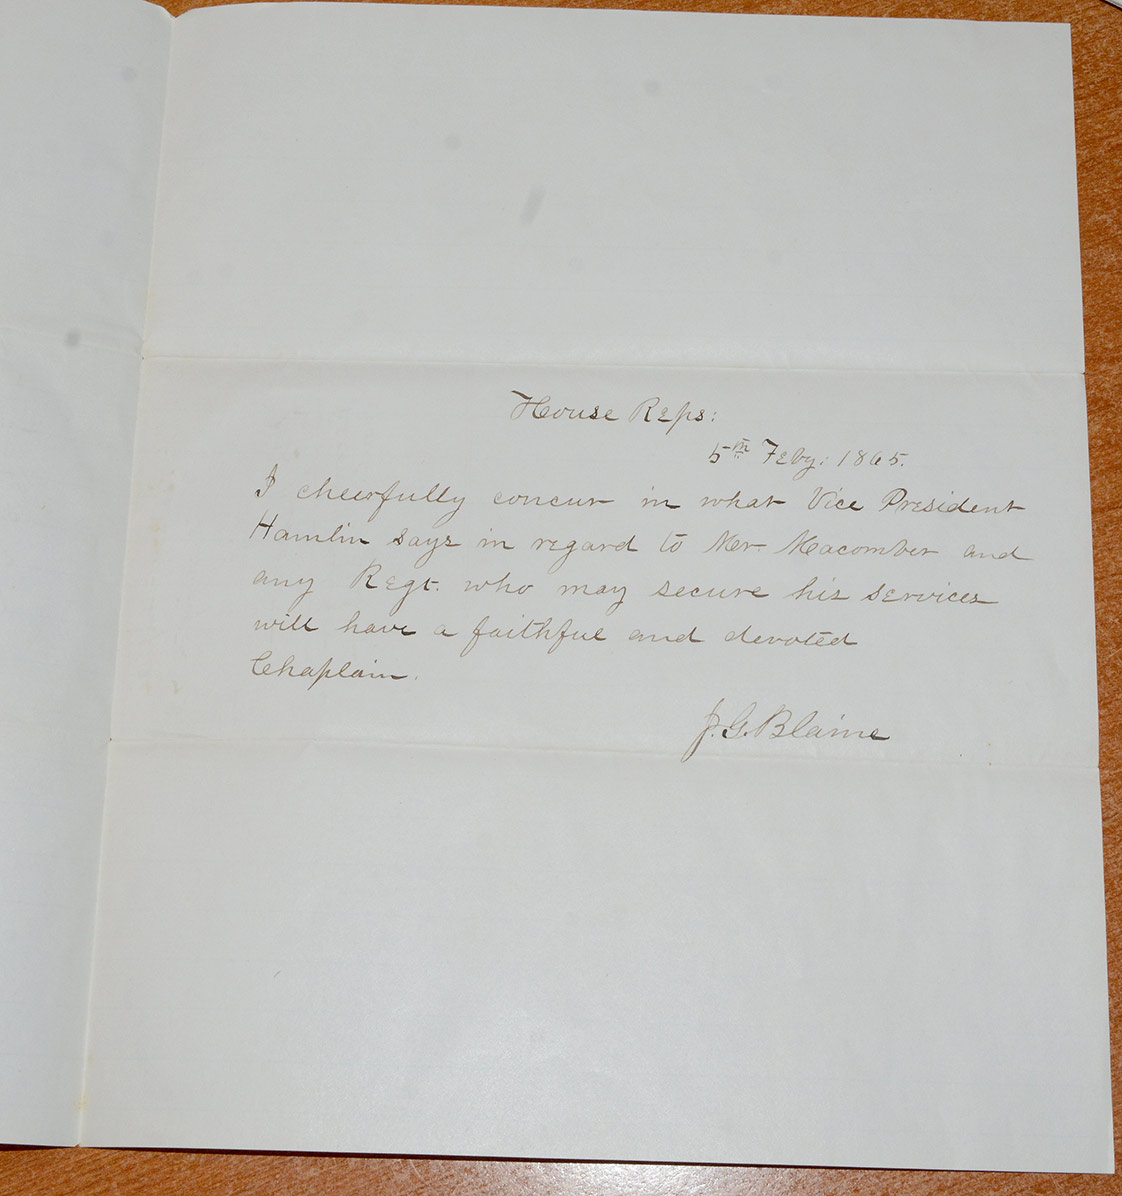 House Reps:
5th Feby: 1865.
I cheerfully concur in what Vice President
Hamlin says in regard to Mr. Macomber and
any Regt. who may secure his services
will have a faithful and devoted
Chaplain.
J. G. Blaine